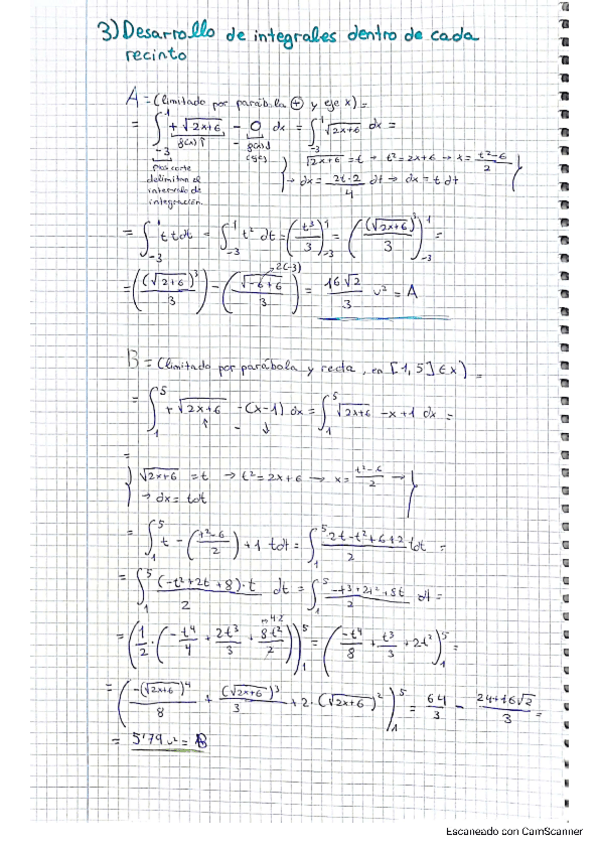 3) Desarrollo de integrales dentro de cada
recinto
A = (limitado por parábola ⊕ y eje x) =
= ∫₋₃¹ +√2x+6 - 0 dx = ∫₋₃¹ √2x+6 dx =
por corte
delimitan el
intervalo de
integración
√2x+6 = t → t² = 2x+6 → x = (t²-6)/2
→ dx = (2t·2)/4 dt → dx = t dt
= ∫₋₃¹ t t dt = ∫₋₃¹ t² dt = (t³/3)₋₃¹ = ((√2x+6)³/3)₋₃¹ =
2(-3)
= ((√2+6)³/3) - (√-6+6/3) = 16√2/3 u² = A
B = (limitado por parábola y recta, en [1,5] ∈ x) =
= ∫₁⁵ +√2x+6 - (x-1) dx = ∫₁⁵ √2x+6 - x + 1 dx =
=
√2x+6 = t → t² = 2x+6 → x = (t²-6)/2 →
→ dx = t dt
= ∫₁⁵ t - ((t²-6)/2) + 1 t dt = ∫₁⁵ (2t-t²+6+2)/2 t dt =
= ∫₁⁵ ((-t²+2t+8)·t)/2 dt = ∫₁⁵ (-t³+2t²+8t)/2 dt =
= (1/2 · (-t⁴/4 + 2t³/3 + 8t²/2))₁⁵ = (-t⁴/8 + t³/3 + 2t²)₁⁵ =
= (-(√2x+6)⁴/8 + (√2x+6)³/3 + 2·(√2x+6)²)₁⁵ = 64/3 - (24+16√2)/3 =
= 5'79 u² = B
Escaneado con CamScanner